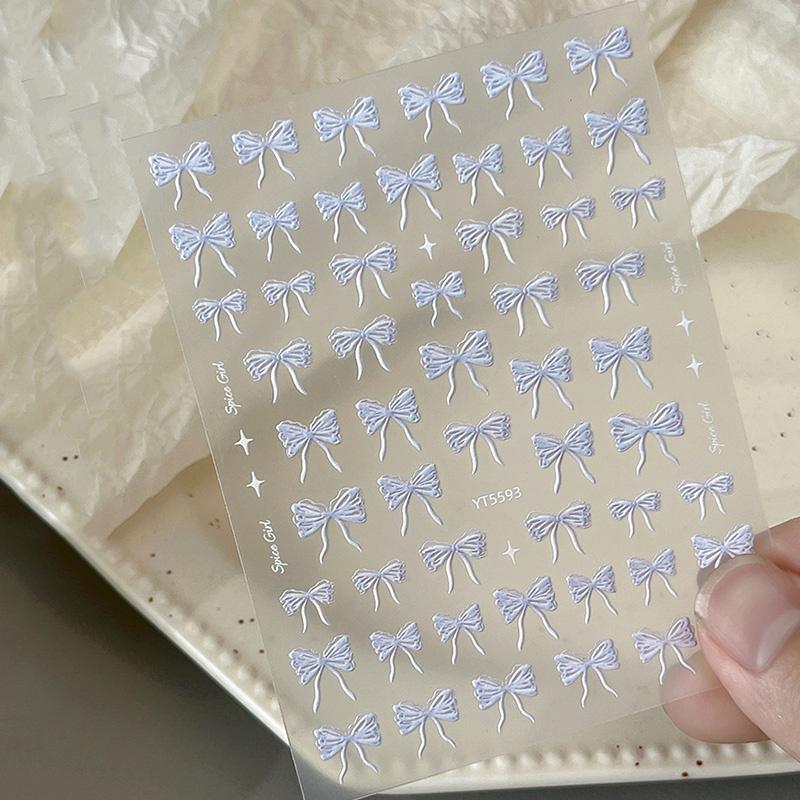 Spice Girl
Spice Girl
Spice Girl
YT5593
Spice Girl